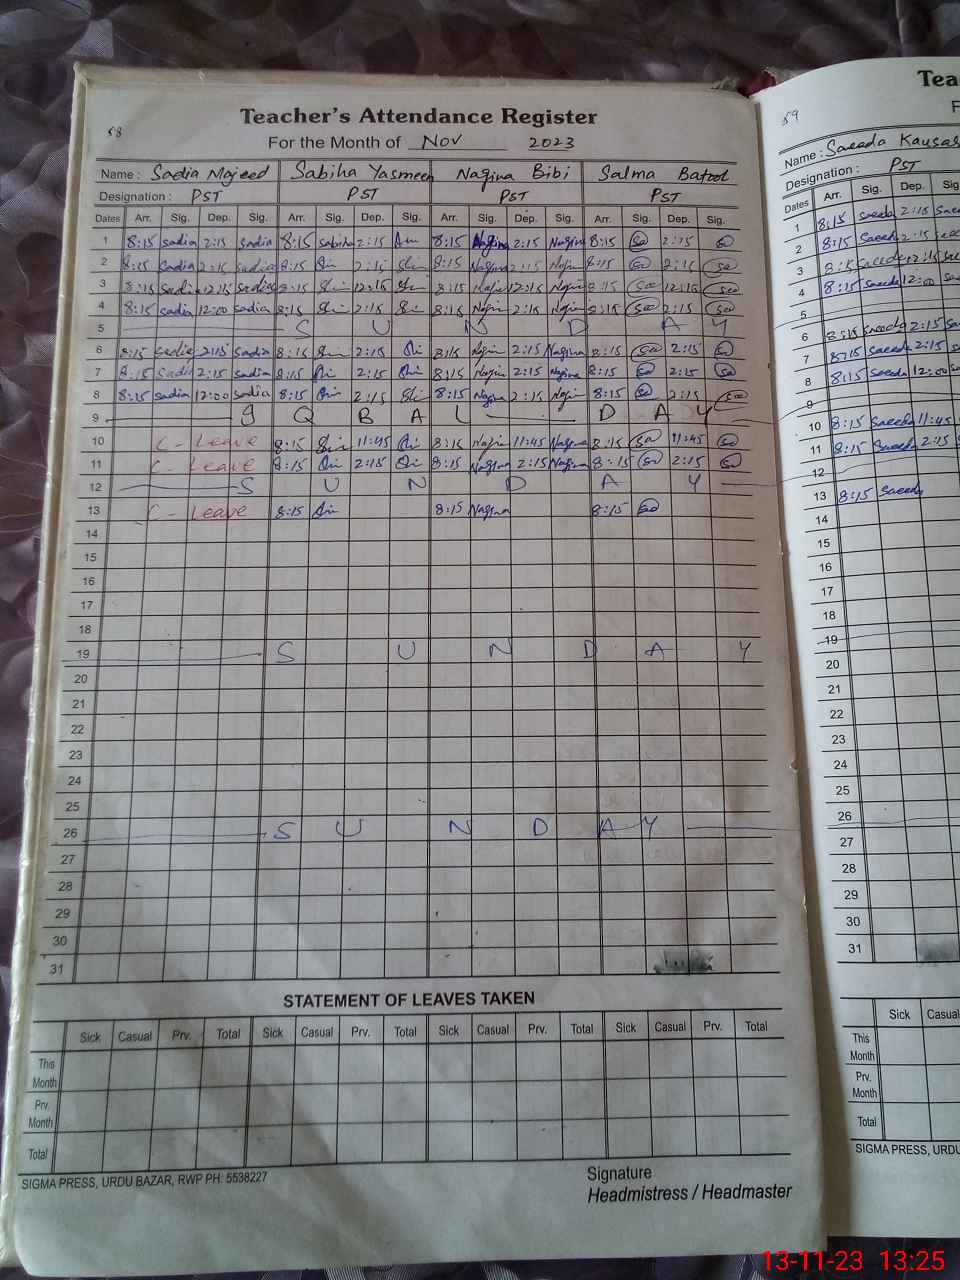 58
Teacher's Attendance Register
For the Month of Nov 2023
Name : Sadia Majeed Sabiha Yasmeen Nagina Bibi Salma Batool
Designation : PST PST PST PST
Dates Arr. Sig. Dep. Sig. Arr. Sig. Dep. Sig. Arr. Sig. Dep. Sig. Arr. Sig. Dep. Sig.
1 8:15 sadia 2:15 sadia 8:15 sabiha 2:15 8:15 Nagina 2:15 Nagina 8:15 sa 2:15 sa
2 8:15 sadia 2:15 sadia 8:15 2:15 8:15 Nagina 2:15 8:15 sa 2:15 sa
3 8:15 sadia 12:15 sadia 8:15 12:15 8:15 12:15 8:15 sa 12:15 sa
4 8:15 sadia 12:00 sadia 8:15 2:15 8:15 2:15 8:15 sa 2:15 sa
5 S U N D A Y
6 8:15 sadia 2:15 sadia 8:15 2:15 8:15 2:15 Nagina 8:15 sa 2:15 sa
7 8:15 sadia 2:15 sadia 8:15 2:15 8:15 2:15 Nagina 8:15 sa 2:15 sa
8 8:15 sadia 12:00 sadia 8:15 2:15 8:15 Nagina 2:15 8:15 sa 2:15 sa
9 I Q B A L D A Y
10 C - Leave 8:15 11:45 8:15 11:45 Nagina 8:15 sa 11:45 sa
11 C - Leave 8:15 2:15 8:15 Nagina 2:15 Nagina 8:15 sa 2:15 sa
12 S U N D A Y
13 C - Leave 8:15 8:15 Nagina 8:15 sa
14
15
16
17
18
19 S U N D A Y
20
21
22
23
24
25
26 S U N D A Y
27
28
29
30
31
STATEMENT OF LEAVES TAKEN
Sick Casual Prv. Total Sick Casual Prv. Total Sick Casual Prv. Total Sick Casual Prv. Total
This Month
Prv. Month
Total
SIGMA PRESS, URDU BAZAR, RWP PH: 5538227
Signature
Headmistress / Headmaster
59
Tea
Name : Saeeda Kausar
Designation : PST
Dates Arr. Sig. Dep. Sig
1 8:15 saeeda 2:15 saee
2 8:15 Saeeda 2:15 saee
3 8:15 saeeda 12:15 sae
4 8:15 saeeda 12:00 sae
5
6 8:15 saeeda 2:15 sa
7 8:15 saeeda 2:15
8 8:15 saeeda 12:00
9
10 8:15 Saeeda 11:45
11 8:15 Saeeda 2:15
12
13 8:15 Saeeda
14
15
16
17
18
19
20
21
22
23
24
25
26
27
28
29
30
31
Sick Casual
This Month
Prv. Month
Total
SIGMA PRESS, URDU
13-11-23 13:25